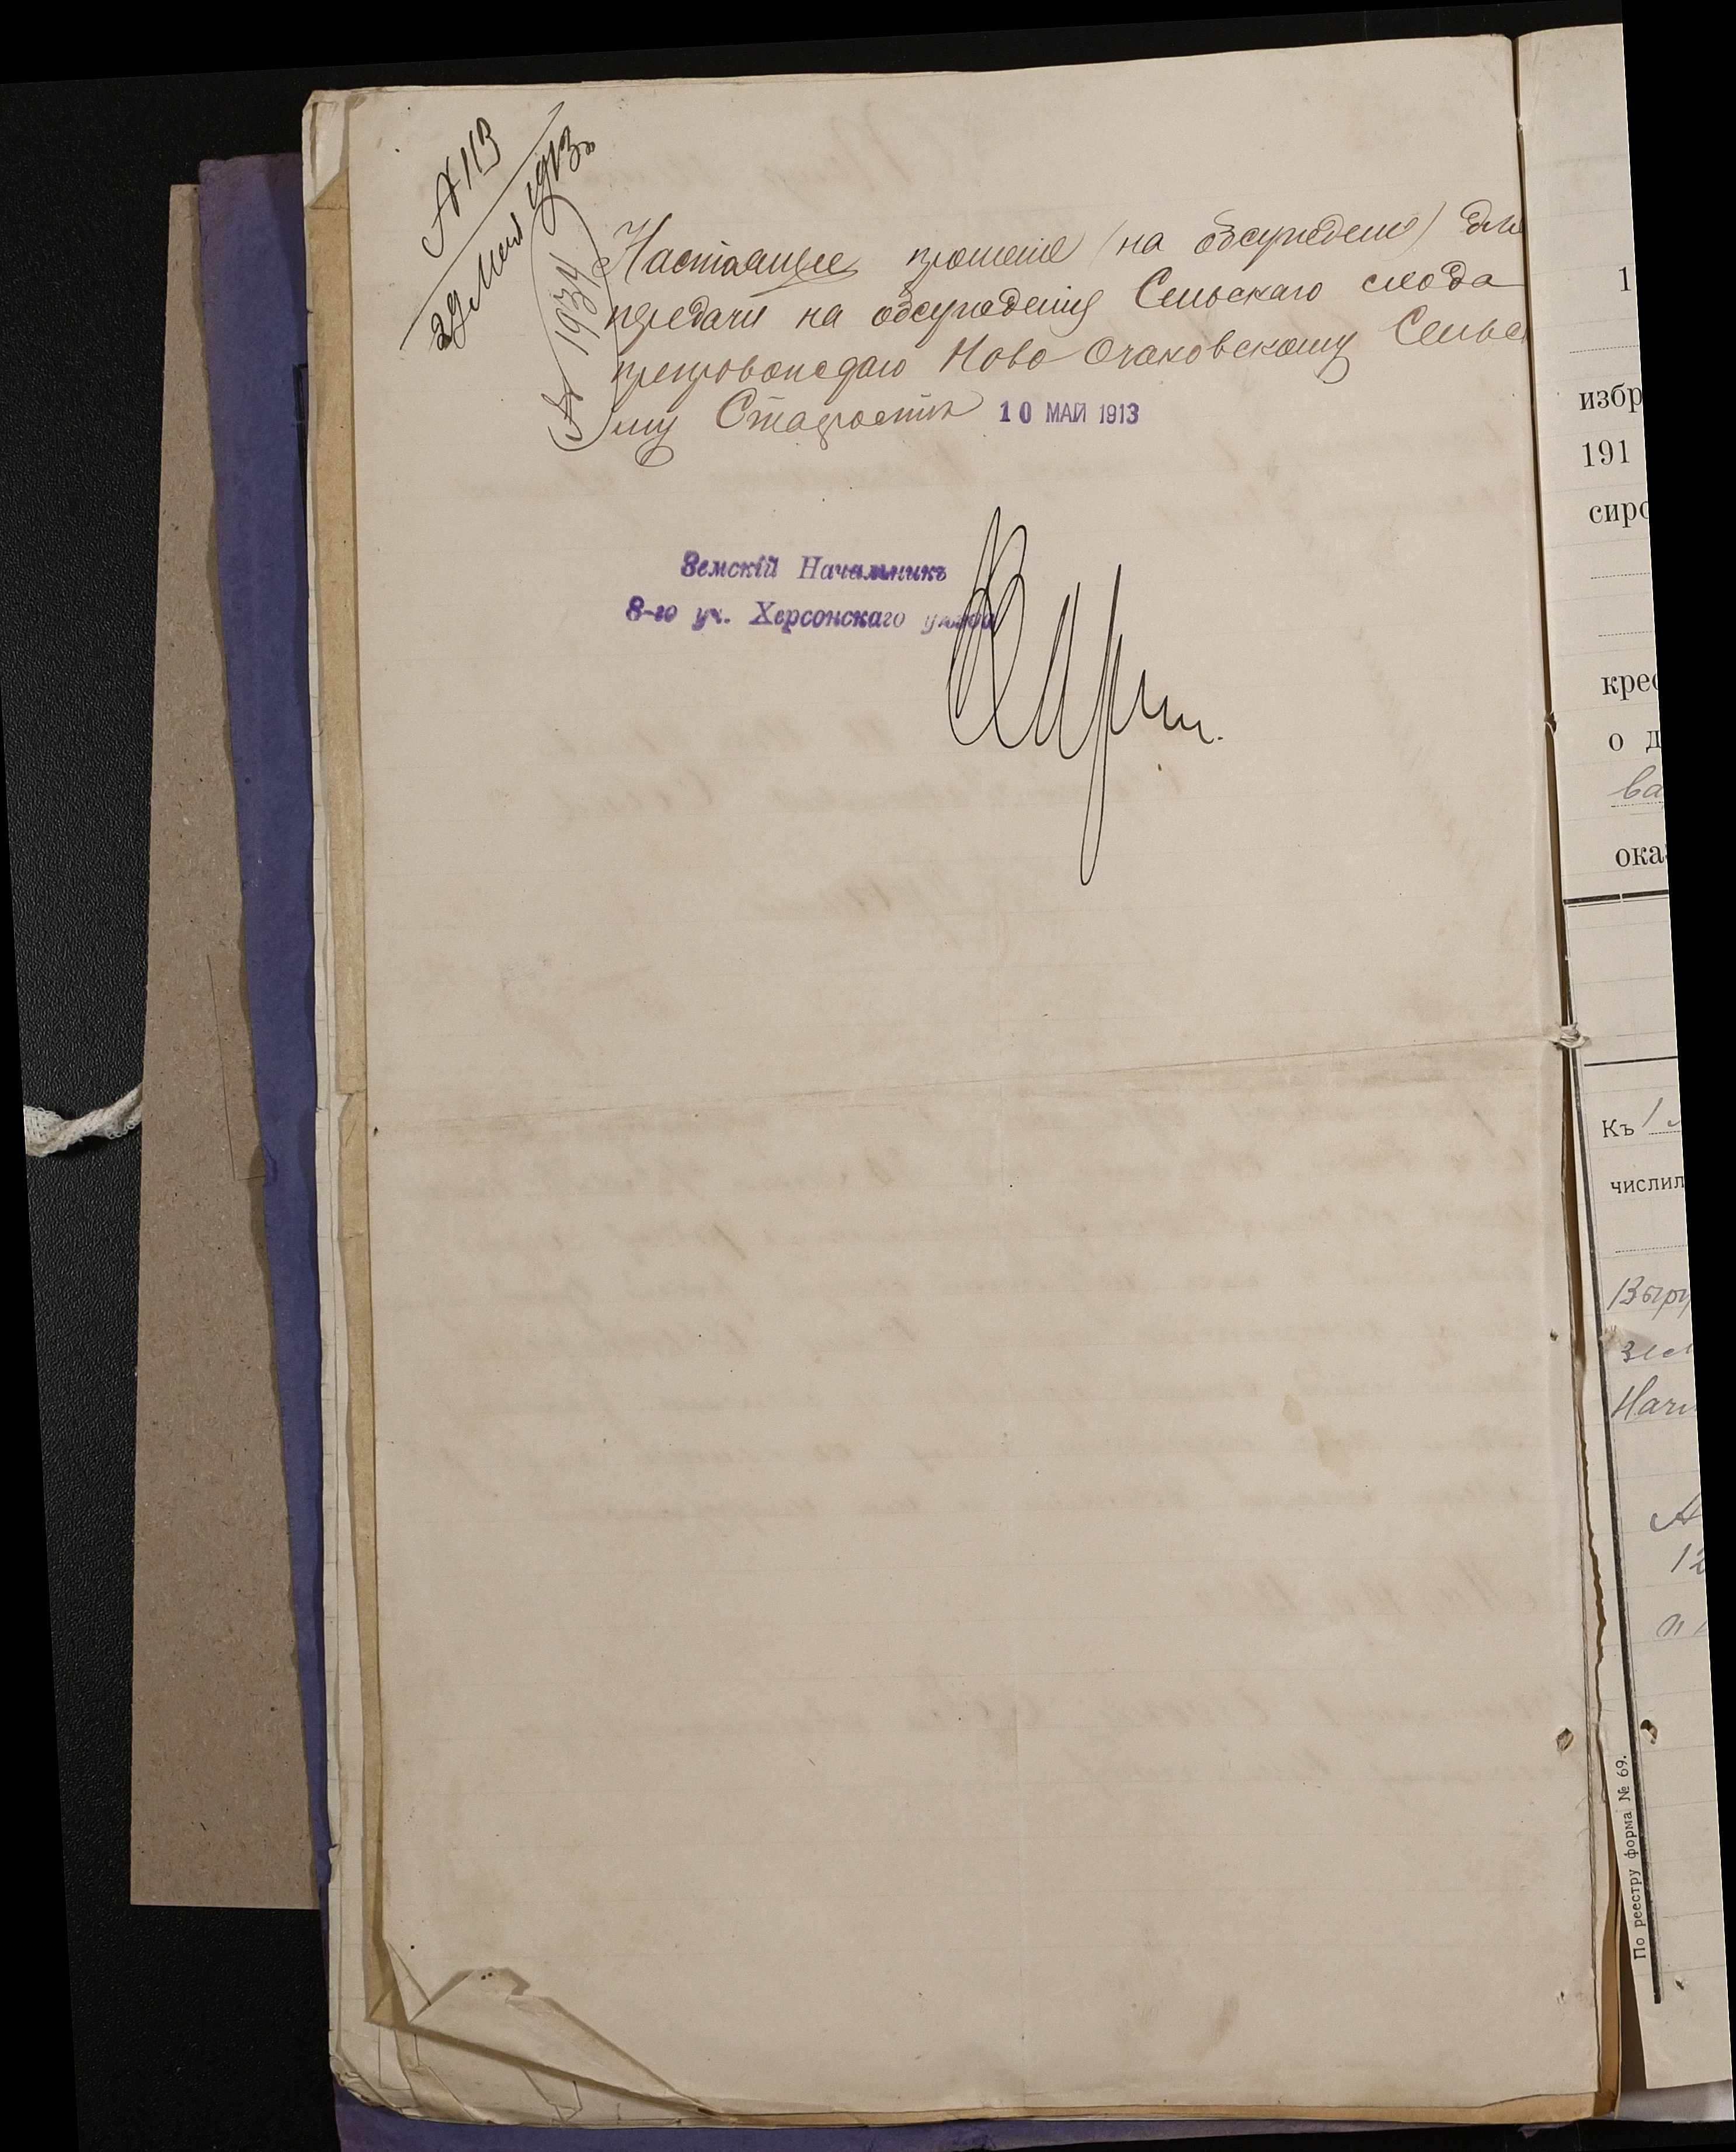 № 113
29 Мая 1913 г.
№ 1934
Настоящее прошение (на обсуждение) для
передачи на обсуждение Сельскаго схода
препровождаю Ново Очаковскому Сельс
му Старостѣ 10 МАЙ 1913
Земскій Начальникъ
8-го уч. Херсонскаго уѣзда
1
избр
191
сиро
крес
о д
ва
ока
Къ 1
числил
зем
Нач
12
По реестру форма № 69.